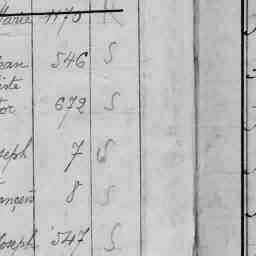 Marie 1170 R
ean 546 S
iste
tor 672 S
seph 7 S
ançois 8 S
Joseph 547 S